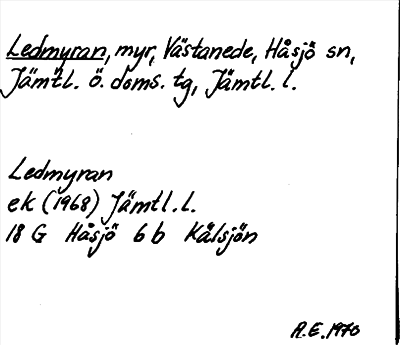 Ledmyran, myr, Västanede, Håsjö sn,
Jämtl. ö. doms. tg, Jämtl. l.
Ledmyran
ek (1968) Jämtl. l.
18 G Håsjö 6 b Kålsjön
R.E. 1970